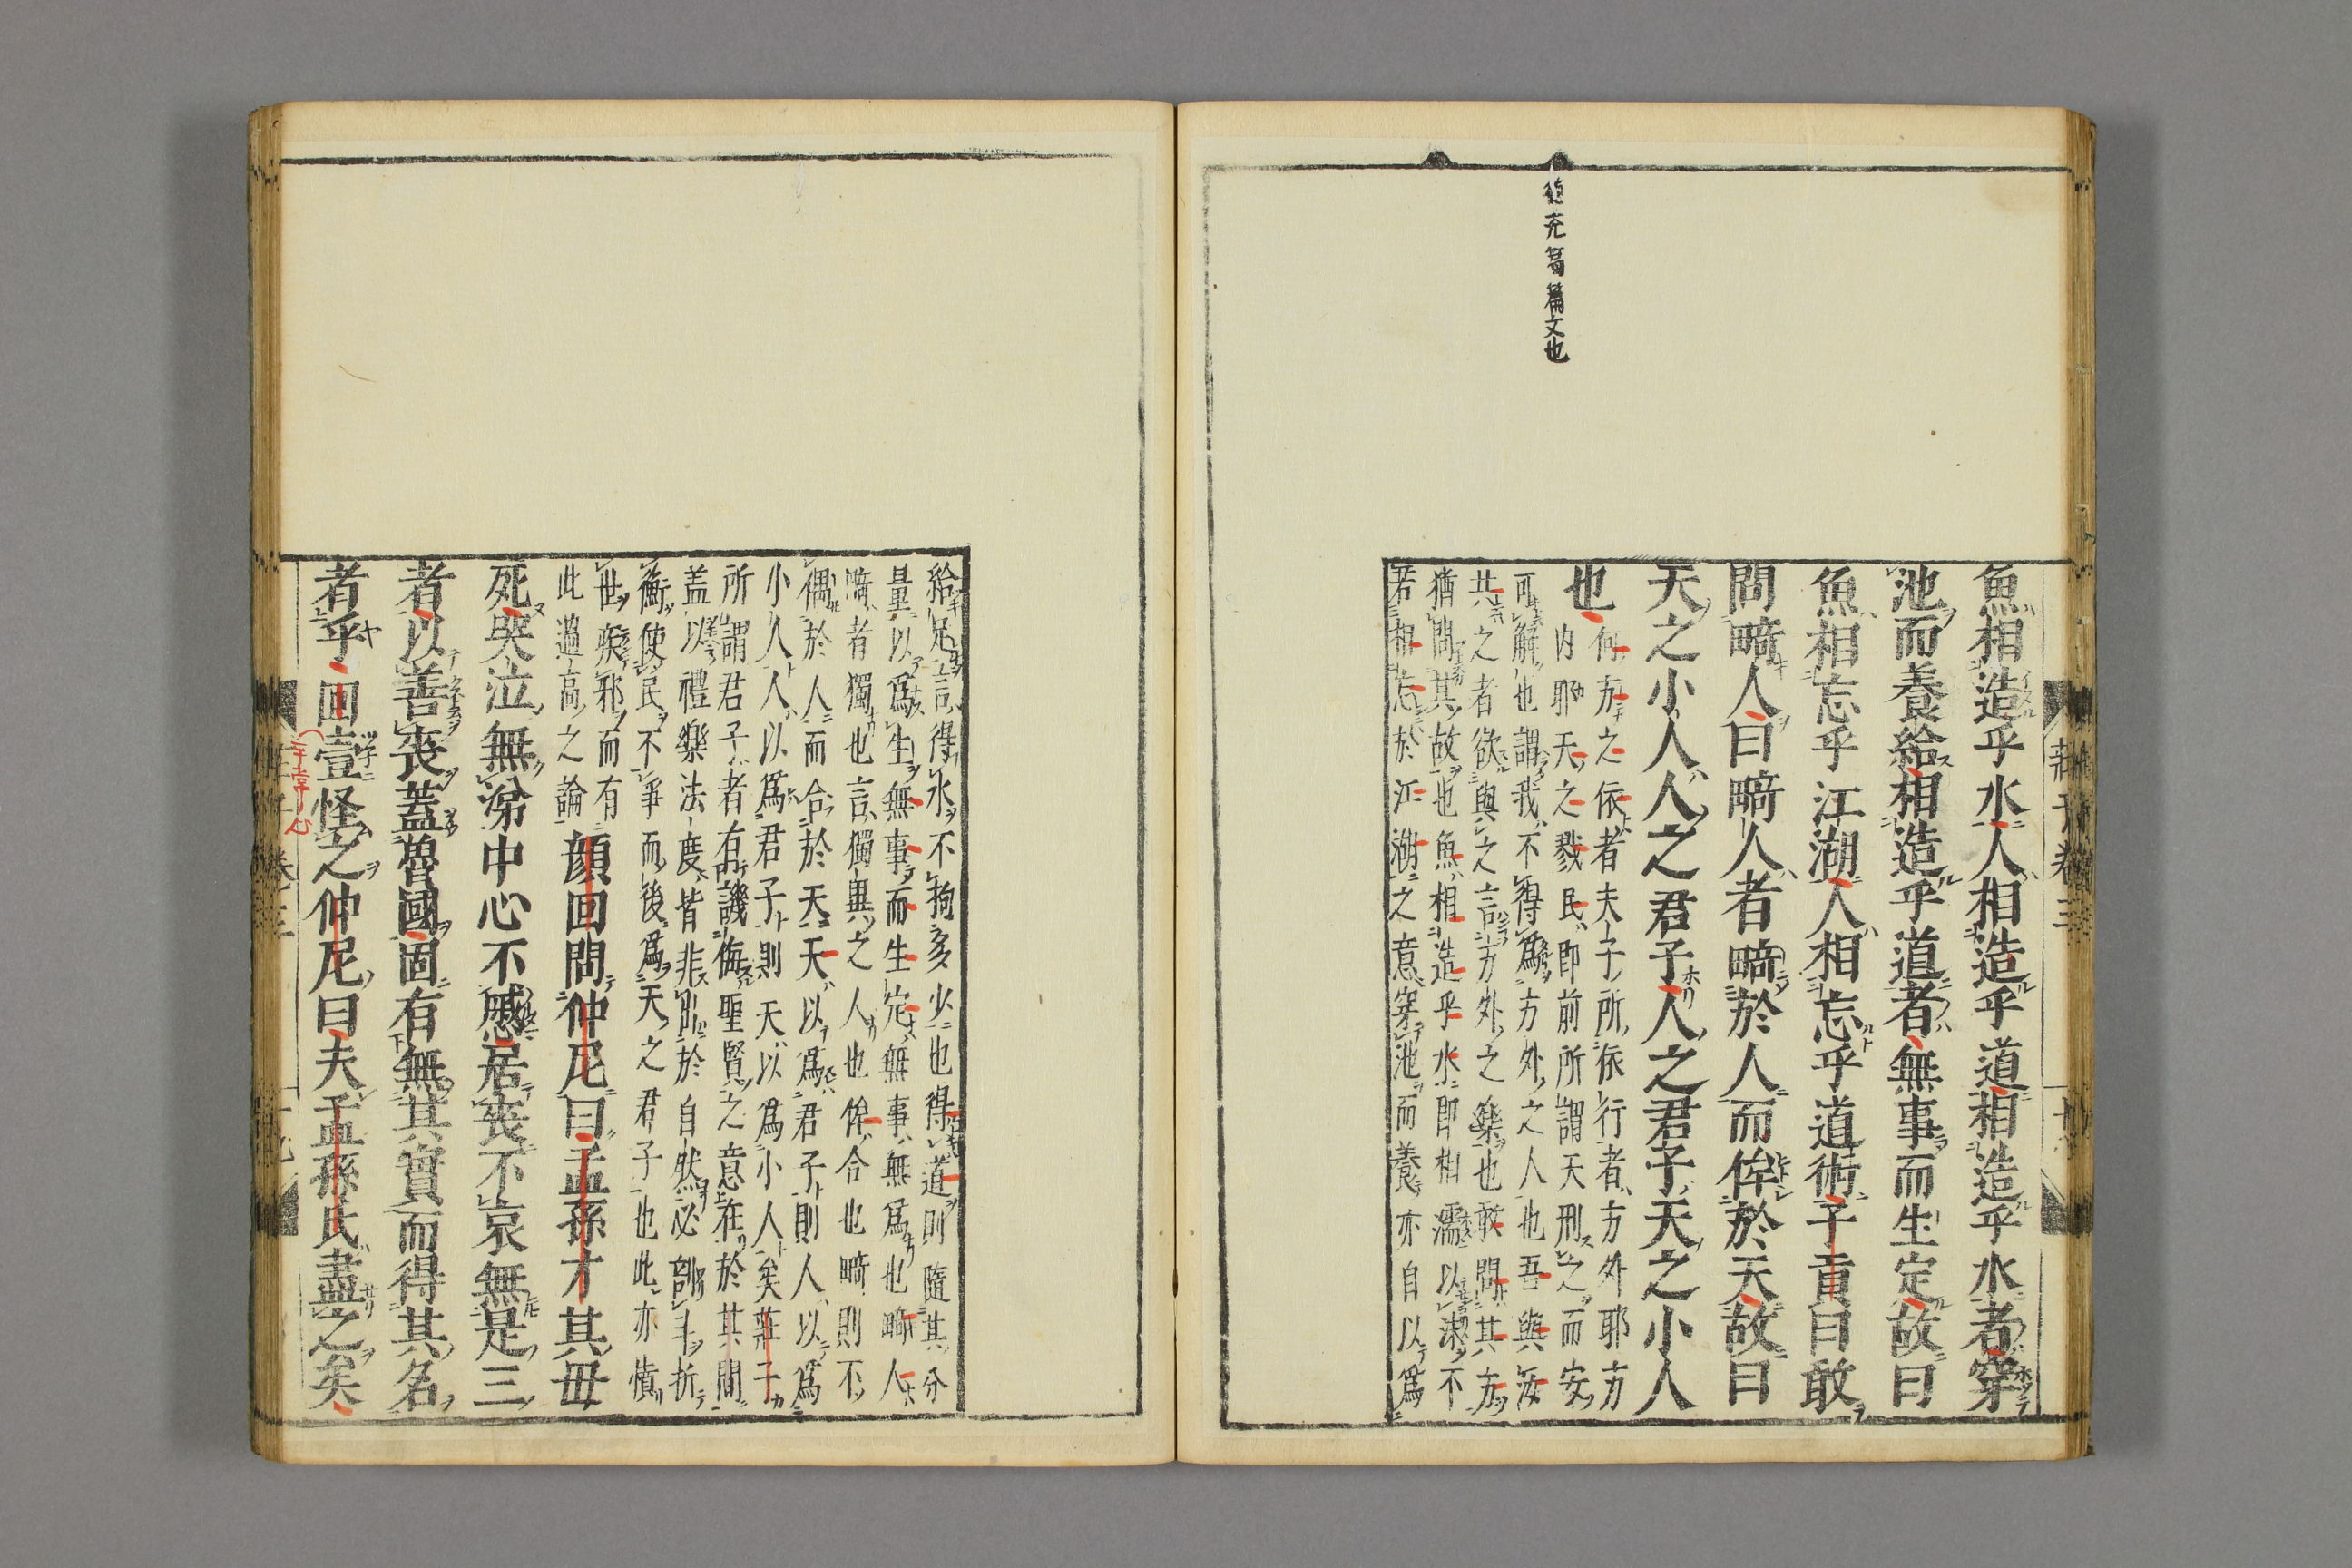 德充符篇文也
魚相造乎水人相造乎道相造乎水者穿
池而養給相造乎道者無事而生定故曰
魚相忘乎江湖人相忘乎道術子貢曰敢
問畸人曰畸人者畸於人而侔於天故曰
天之小人人之君子人之君子天之小人
也
何方之依者夫子所依行者方外耶方
内耶天之戮民即前所謂天刑之而安
可解也謂我不得爲方外之人也吾與汝
共之者欲與之言方外之樂也敢問其方
猶問其故也魚相造乎水即相濡以沫不
若相忘於江湖之意穿池而養亦自以爲
給足言得水不拘多少也得道則隨其分
量以爲生無事而生定無事無爲也畸人
畸者獨也言獨異之人也侔合也畸則不
偶於人而合於天天以爲君子則人以爲
小人人以爲君子則天以爲小人矣莊子
所謂君子者有譏侮聖賢之意在於其間
盖以禮樂法度皆非出於自然必剖斗折
衡使民不爭而後爲天之君子也此亦憤
世疾邪而有
此過高之論
顏回問仲尼曰孟孫才其毋
死哭泣無涕中心不慼居喪不哀無是三
者以善喪蓋魯國固有無其實而得其名
者乎回壹怪之仲尼曰夫孟孫氏盡之矣